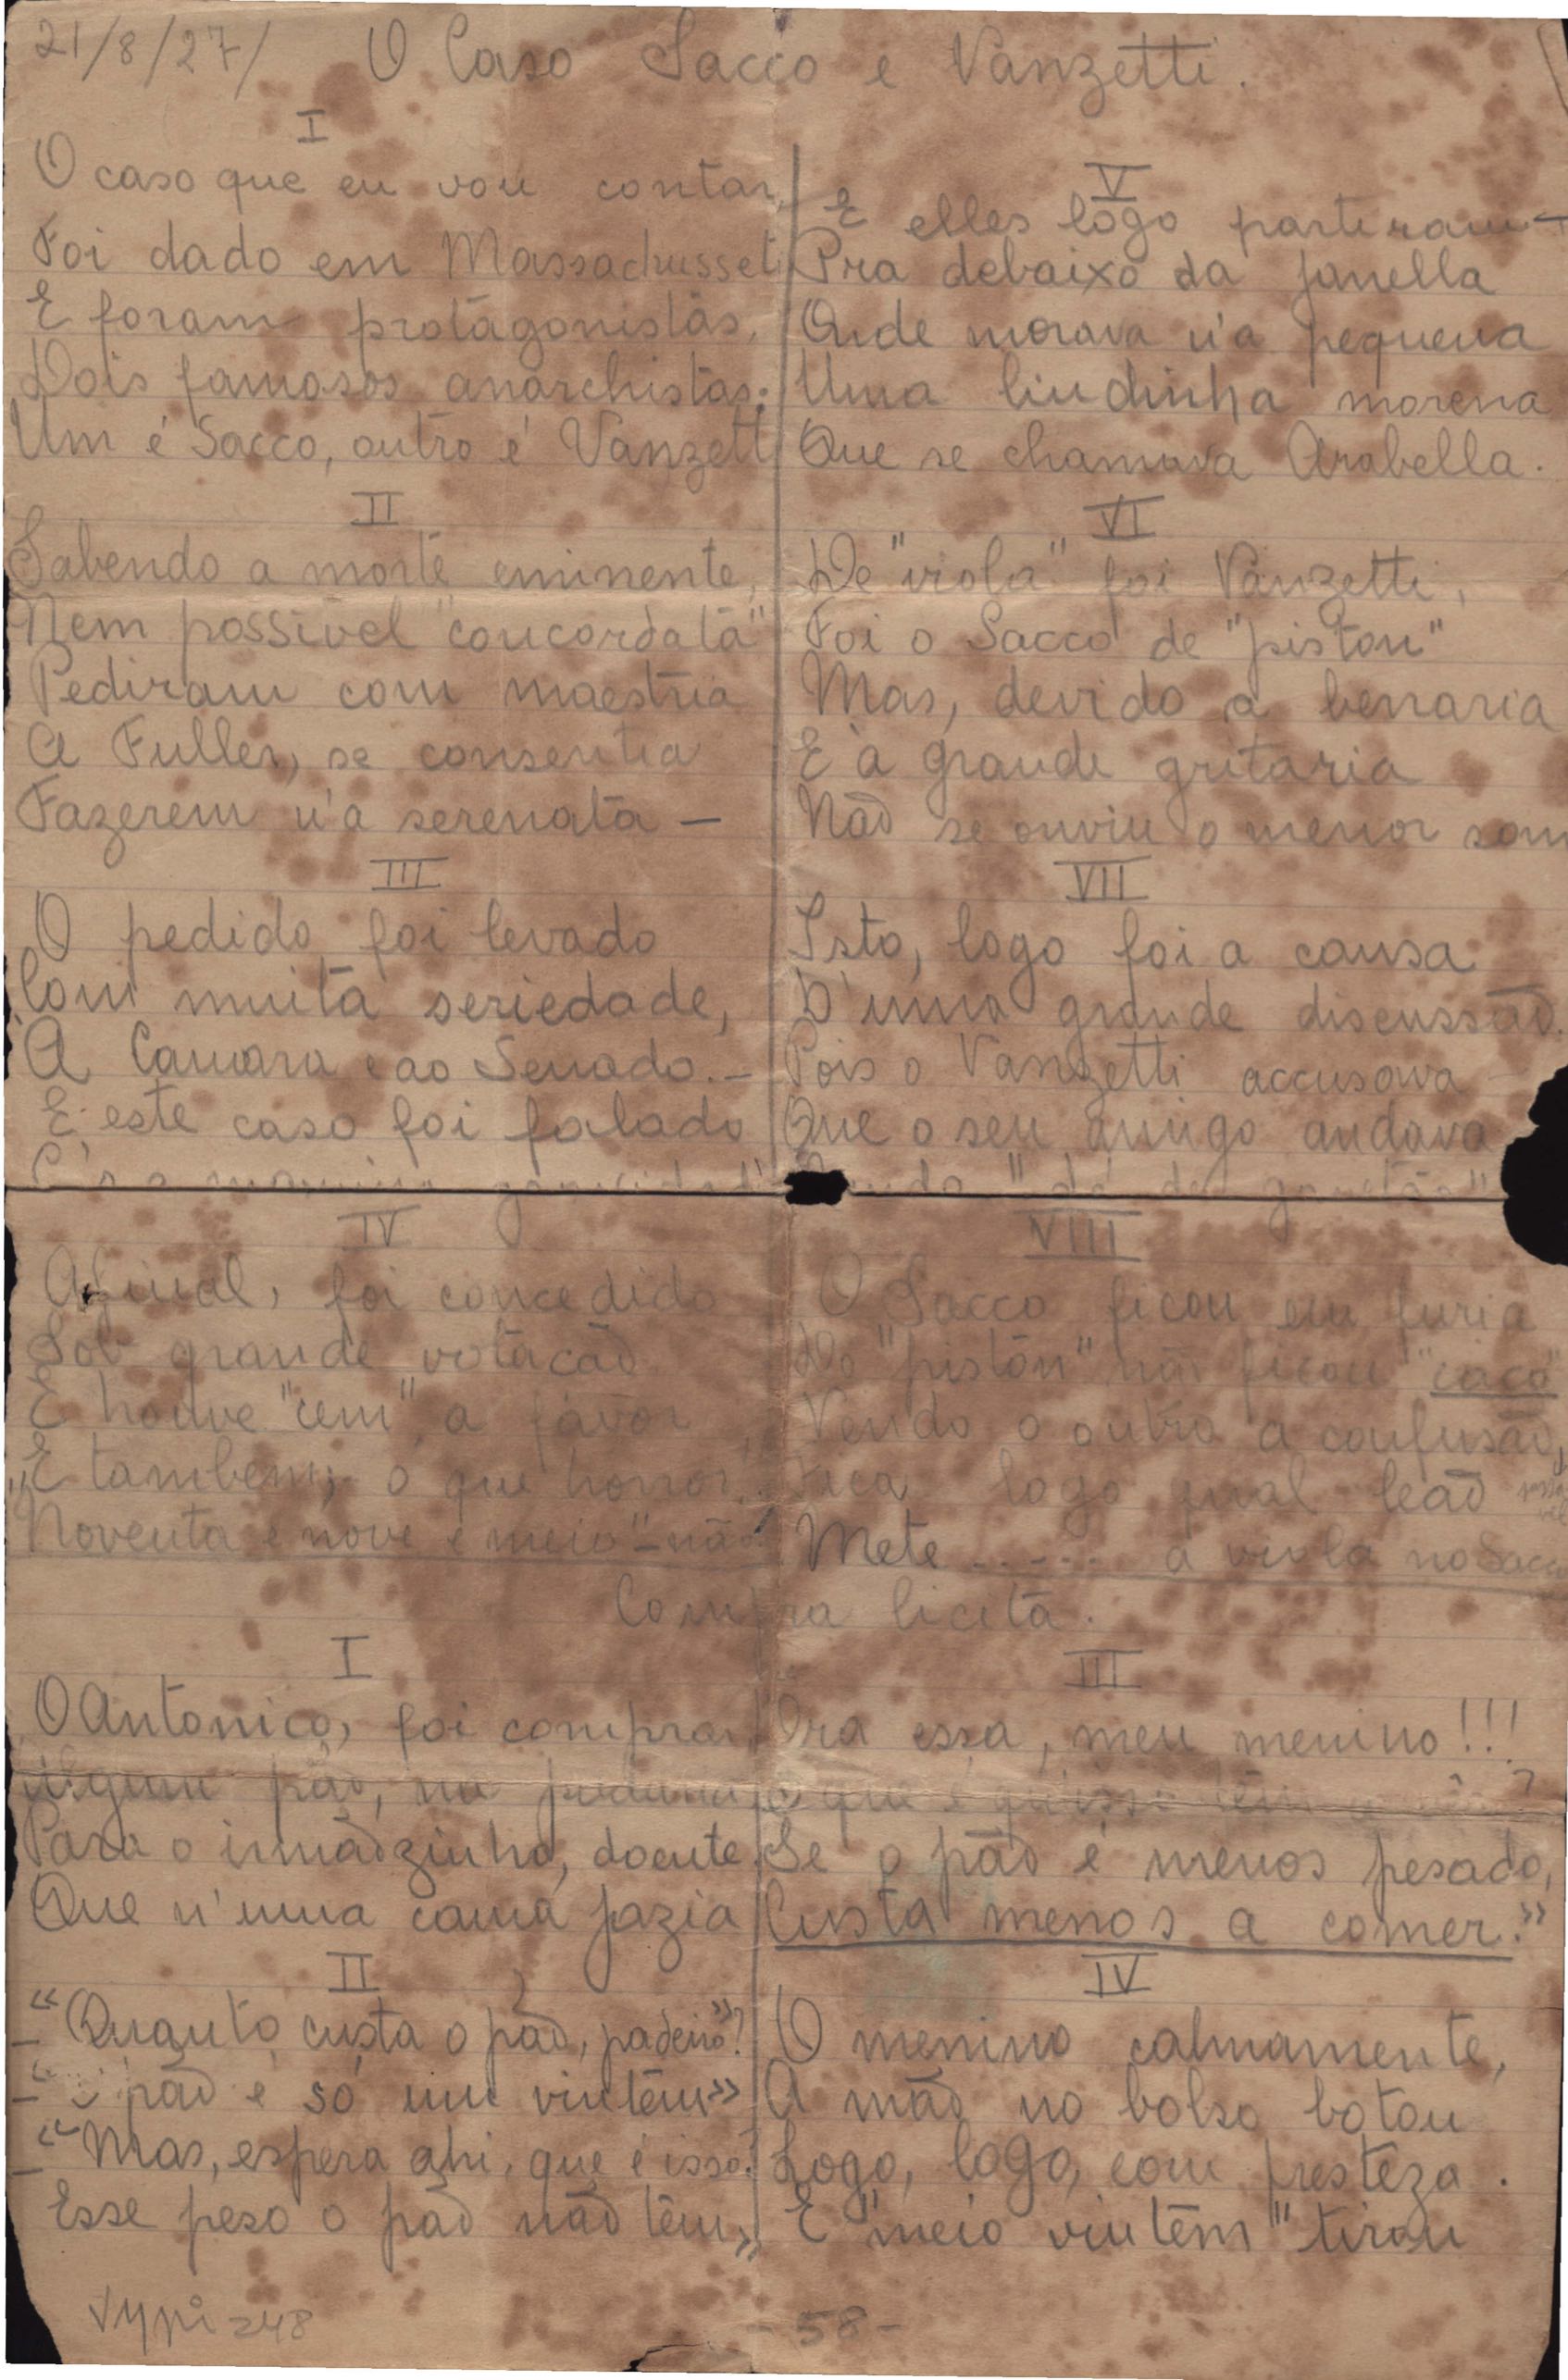 21/8/27/ O Caso Sacco e Vanzetti.
I
O caso que eu vou contar,
Foi dado em Massachusset
E foram protagonistas,
Dois famosos anarchistas:
Um é Sacco, outro é Vanzett
II
Sabendo a morte eminente,
Nem possivel "concordata"
Pediram com maestria
A Fuller, se consentia
Fazerem u'a serenata —
III
O pedido foi levado
Com muita seriedade,
Á Camara e ao Senado. —
E este caso foi falado
IV
Afinal, foi concedido
Sob grande votacão
E houve "cem" a favor
"E tambem, o que horror
Noventa e nove e meio" — não
V
E elles lógo partiram —
Pra debaixo da janella
Onde morava u'a pequena
Uma lindinha morena
Que se chamava Arabella.
VI
De "viola" foi Vanzetti,
Foi o Sacco de "piston"
Mas, devido a berraria
E á grande gritaria
Não se ouviu o menor som
VII
Isto, logo foi a causa
D'uma grande discussão
Pois o Vanzetti accusava —
Que o seu amigo andava
VIII
O Sacco ficou em furia
Do "pistón" não ficou "caco"
Vendo o outro a confusão,
Fica logo qual leão
Mete ...... a viola no Sacco
Compra licita.
I
O Antonico, foi comprar
Algum pão, na padaria
Para o irmãozinho, doente
Que n'uma cama jazia
II
— "Quanto custa o pão, padeiro"?
— " pão é só um vintêm"
— "Mas, espera ahi, que é isso?
Esse peso o pão não têm"
III
Ora essa, meu menino!!!
Se o pão é menos pesado,
Custa menos a comer."
IV
O menino calmamente,
A mão no bolso botou
Logo, logo, com presteza.
E "meio vintêm" tirou
- 58 -